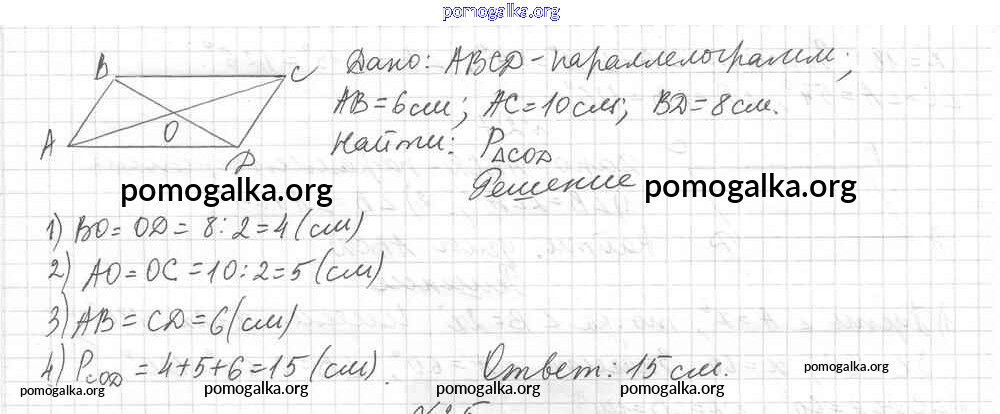 pomogalka.org
B C Дано: ABCD - параллелограмм;
AB = 6 см; AC = 10 см; BD = 8 см.
A O D Найти: P△COD
Решение
pomogalka.org pomogalka.org
1) BO = OD = 8 : 2 = 4 (см)
2) AO = OC = 10 : 2 = 5 (см)
3) AB = CD = 6 (см)
4) PCOD = 4 + 5 + 6 = 15 (см). Ответ: 15 см.
pomogalka.org pomogalka.org pomogalka.org pomogalka.org pomogalka.org